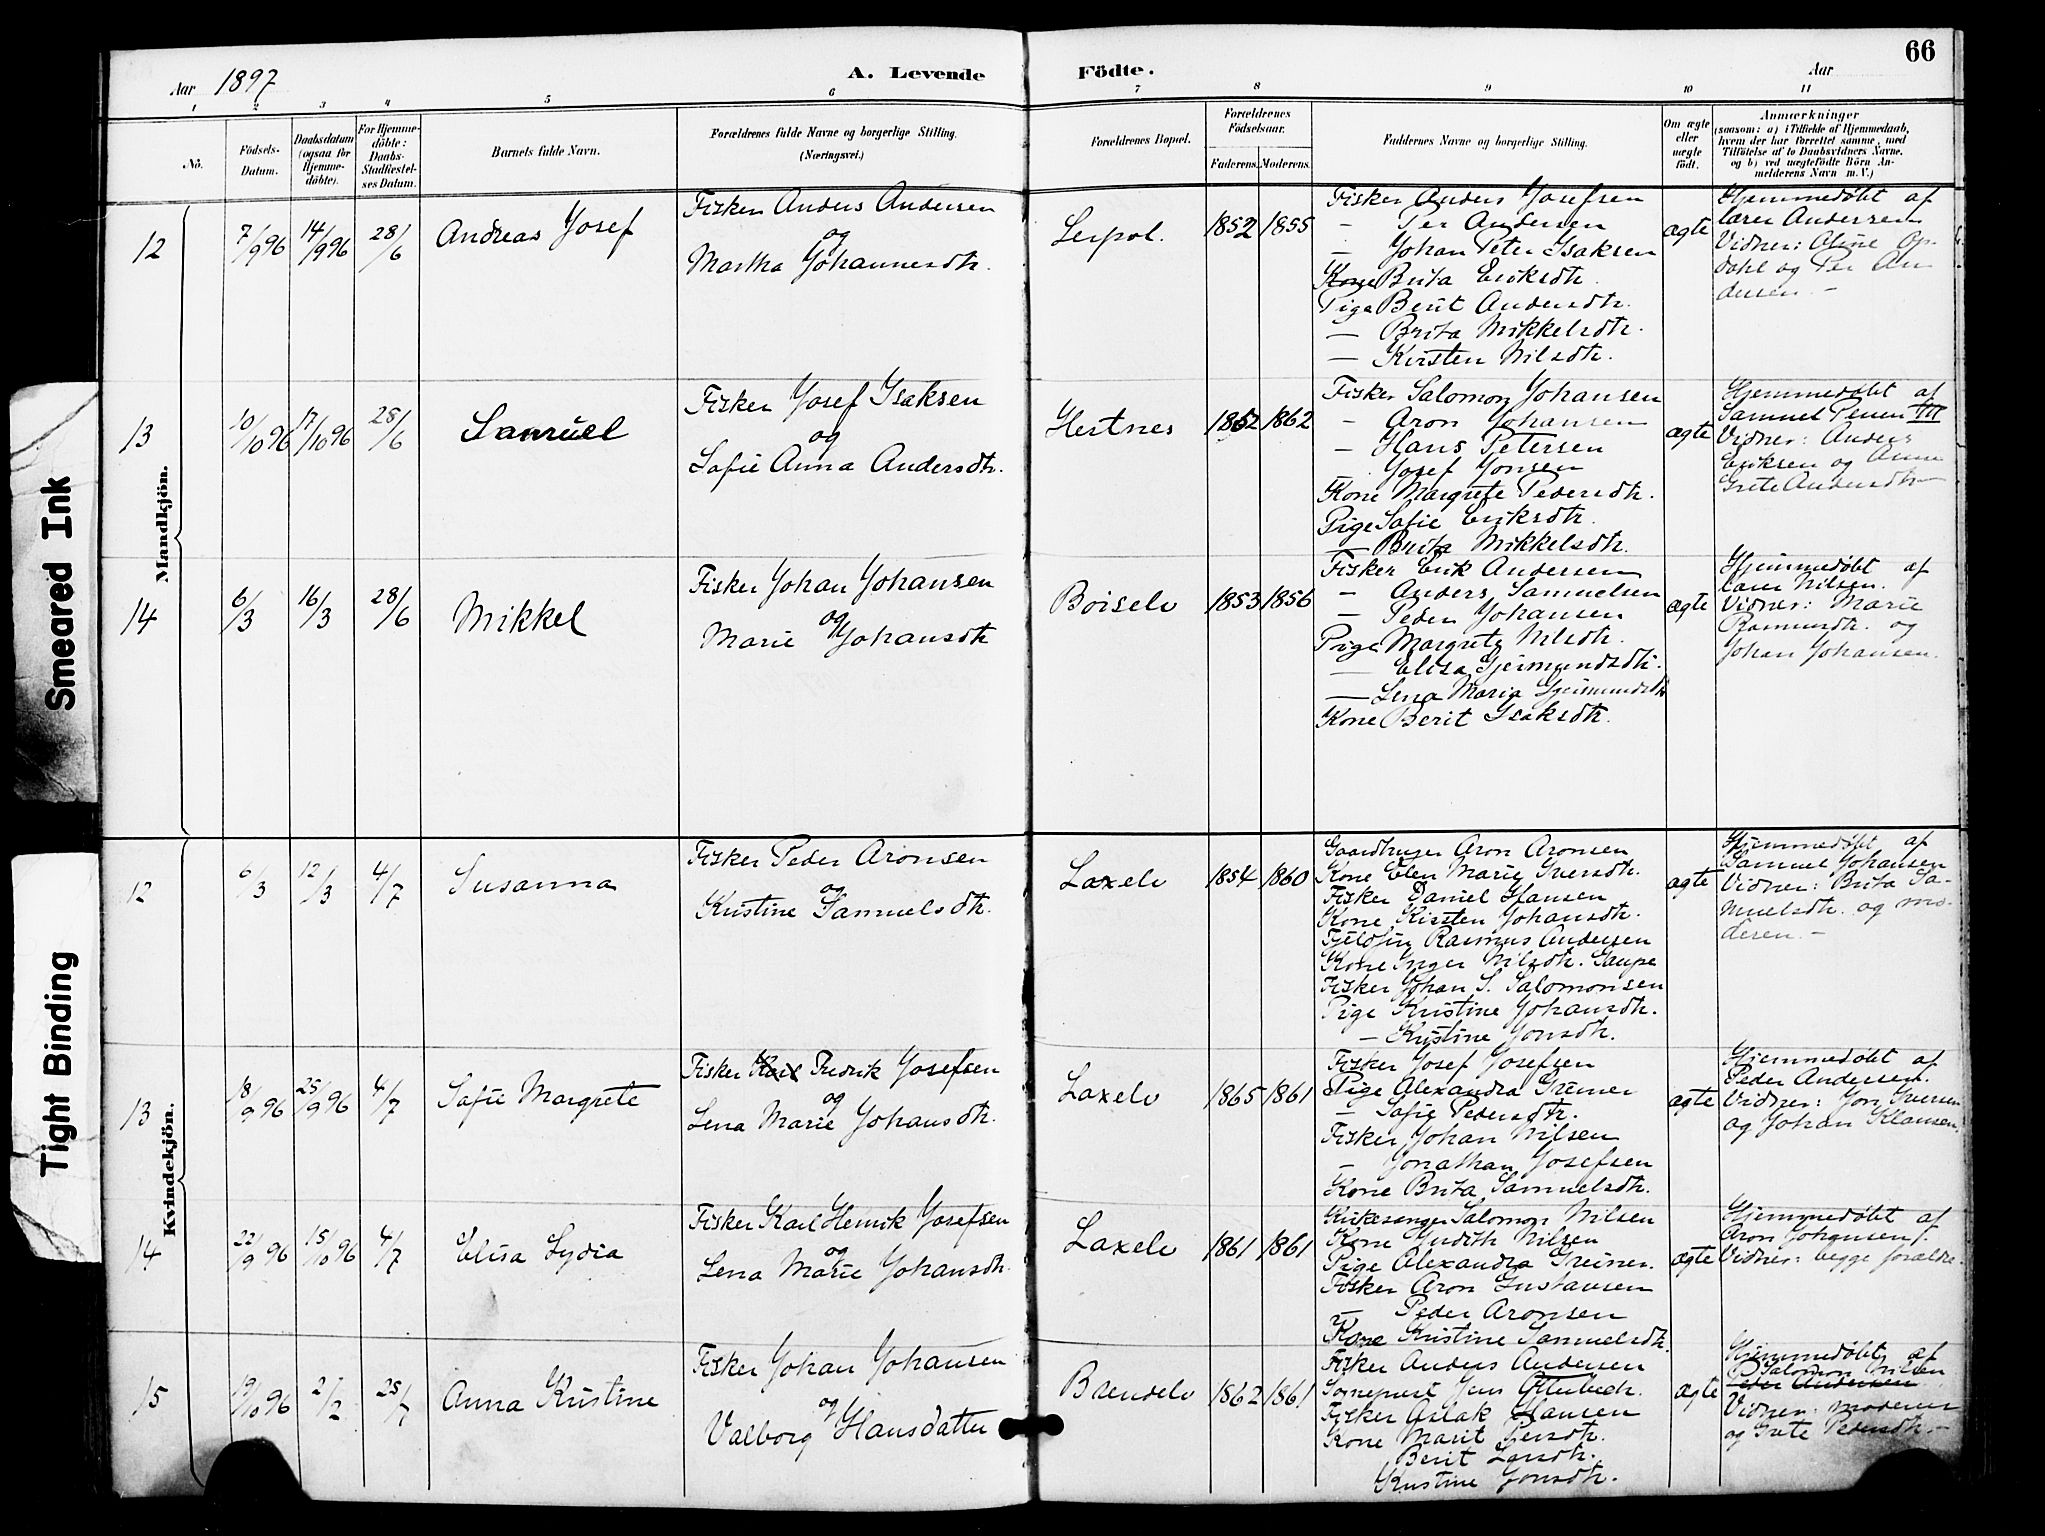 66
Aar 1897
A. Levende
Födte.
Aar
1 2 3 4 5 6 7 8 9 10 11
Nô.
Födsels-
Datum.
Daabsdatum
(ogsaa for
Hjemme-
döbte).
For Hjemme-
döbte:
Daabs-
Stadfæstel-
ses Datum.
Barnets fulde Navn.
Forældrenes fulde Navne og borgerlige Stilling.
(Næringsvei.)
Forældrenes Bopæl.
Forældrenes
Födselsaar.
Faderens. Moderens.
Faddernes Navne og borgerlige Stilling.
Om ægte
eller
uægte
födt.
Anmærkninger
(saasom: a) i Tilfælde af Hjemmedaab,
hvem der har forrettet samme, med
Tilföielse af to Daabsvidners Navne,
og b) ved uægtefödte Börn An-
melderens Navn m. V.)
Smeared Ink
Tight Binding
Mandkjön.
12
7/9 96
14/9 96
28/6
Andreas Josef
Fisker Anders Andersen
og
Martha Johannesdtr.
Leipol.
1852 1855
Fisker Anders Josefsen
— Per Andersen
— Johan Peter Isaksen
Kone Brita Eriksdtr.
Pige Berit Andersdtr.
— Brita Mikkelsdtr.
— Kirsten Nilsdtr.
ægte
Hjemmedøbt af
lærer Andersen
Vidner: Oline Op-
dahl og Per An
dersen —
13
10/10 96
17/10 96
28/6
Samuel
Fisker Josef Isaksen
og
Sofie Anna Andersdtr.
Hestnes
1862 1862
Fisker Salomon Johansen
— Aron Johansen
— Hans Petersen
— Josef Jonsen
Kone Margrete Pedersdtr.
Pige Sofie Eriksdtr.
— Brita Mikkelsdtr.
ægte
Hjemmedøbt af
Samuel
Vidner: Anders
Eriksen og Anne
Grete Andersdtr—
14
6/3
16/3
28/6
Mikkel
Fisker Johan Johansen
og
Marie Johansdtr
Børselv
1853 1856
Fisker Erik Andersen
— Anders Samuelsen
— Peder Johansen
Pige Margrete Nilsdtr.
— Elisa Gjermundsdtr.
— Lena Maria Gjermundsdtr
Kone Berit Isaksdtr.
ægte
Hjemmedøbt af
lærer Nilsen.
Vidner: Marie
Rasmusdtr. og
Johan Johansen.
Kvindekjön.
12
6/3
12/3
4/7
Susanna
Fisker Peder Aronsen
og
Kristine Samuelsdtr.
Laxelv
1854 1860
Gaardbruger Aron Aronsen
Kone Elen Marie Iversdtr.
Fisker Daniel Hansen
Kone Kirsten Johansdtr.
Fjeldfin Rasmus Andersen
Kone Inger Nilsdtr. Gaupe
Fisker Johan S. Salomonsen
Pige Kristine Johansdtr.
— Kristine Jonsdtr.
ægte
Hjemmedøbt af
Samuel Johansen
Vidner: Brita Sa-
muelsdtr. og mo-
deren. —
13
18/9 96
25/9 96
4/7
Sofie Margrete
Fisker Karl Fredrik Josefsen
og
Lena Marie Johansdtr.
Laxelv
1865 1861
Fisker Josef Josefsen
Pige Alexandra Greiner
— Sofie Pedersdtr.
Fisker Johan Nilsen
— Jonathan Josefsen
Kone Brita Samuelsdtr.
ægte
Hjemmedøbt af
Peder Andersen.
Vidner: Jon Iversen
og Johan Klausen.
14
22/9 96
15/10 96
4/7
Elisa Lydia
Fisker Karl Henrik Josefsen
og
Lena Marie Johansdtr.
Laxelv
1861 1861
Kirkesanger Salomon Nilsen
Kone Judith Nilsen
Pige Alexandra Greiner.
Fisker Aron Gustavsen
— Peder Aronsen
Kone Kristine Samuelsdtr.
ægte
Hjemmedøbt af
Aron Johansen.
Vidner: begge forældre.
15
19/10 96
2/2
25/7
Anna Kristine
Fisker Johan Johansen
og
Valborg Hansdatter
Brendelv
1862 1861
Fisker Anders Andersen
Sogneprest Jens Otterbech.
Fisker Aslak Hansen
Kone Marit Persdtr.
Berit Larsdtr.
Kristine Jonsdtr.
ægte
Hjemmedøbt af
Salomon Nilsen
Peder Andersen
Vidner: moderen
og Grete Pedersdtr. —